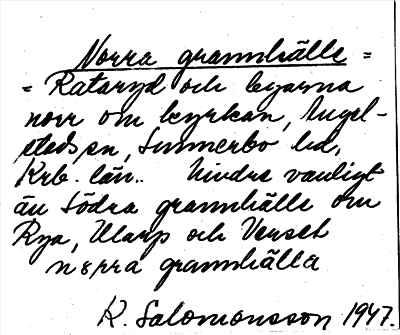 Norra grannhälle =
= Rataryd och byarna
norr om kyrkan, Angel-
stads sn, Sunnerbo hd,
Krb. län.. Mindre vanligt
än Södra grannhälle om
Rya, Ularp och Verset
norra grannhälla
K. Salomonsson 1947.